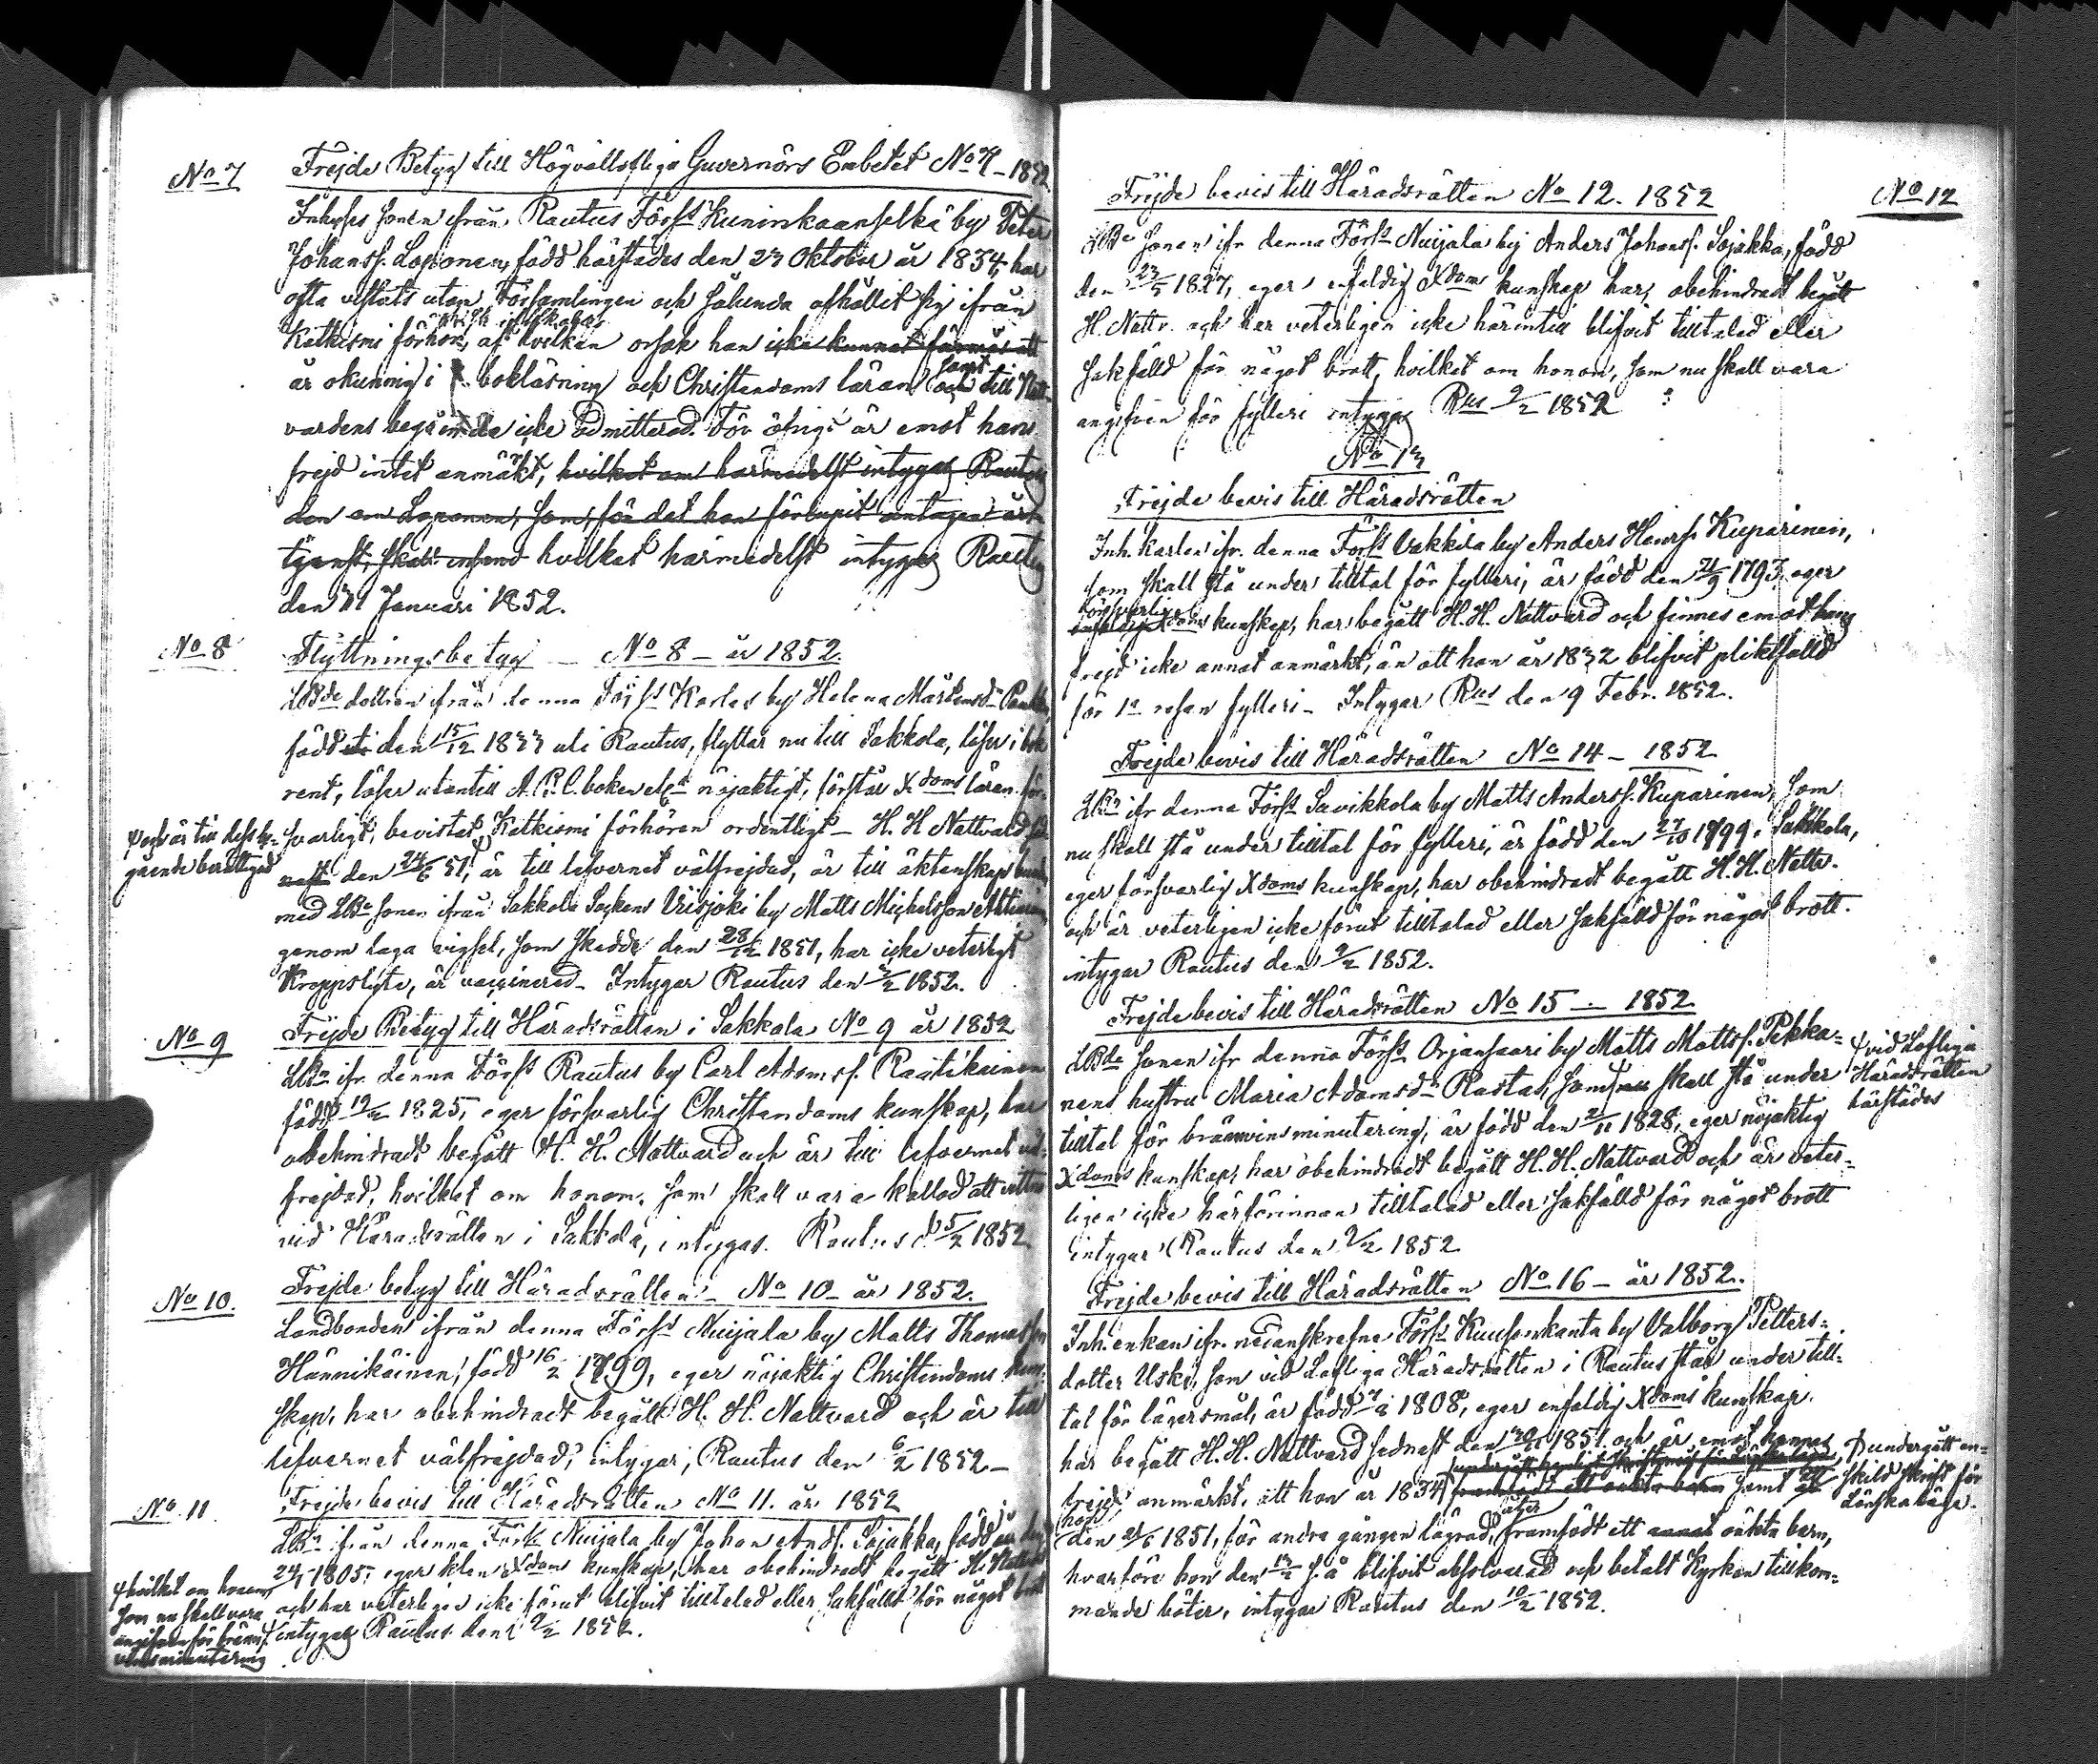 No 7
Frejde Betyg till Högvällofliga Guvernörs Embetet No 7 - 1852.
Inhyses sonen ifrån Rautus Förs:s Kuninkaanselkä by Peter
Johanss. Loponen, född härstädes den 23 Oktober år 1834, har
ofta vistats utan Församlingen och sålunda afhållit sig ifrån
Katkismi förhör, af hvilken orsak han icke kunnat
är okunnig i bokläsning och Christendoms läran samt till Natt-
vardens begående icke admitterad. För öfrigt är emot hans
frejd intet anmärkt, hvilket om härmedelst intygas Rautus
den om Loponen, som, för det han förlupit antagen
tjenst, skall hvilket härmedelst intygas Rautus
den 31 Januari 1852.
No 8
Flyttningsbetyg - No 8 - år 1852.
LBde dottren ifrån denna Förs:s Korles by Helena Mårtensd:r
född den 15/12 1833 uti Rautus, flyttar nu till Sakkola, läser i bok
rent, läser utantill A.B.C. boken etc nöjaktigt, förstår Xdoms läran för-
svarligt, bevistat Katkismi förhören ordentligt - H. H. Nattvard
och är till dess be-
gående berättigad
den 24/6 51, är till lefvernet välfrejdad, är till äktenskap
med LBde sonen ifrån Sakkola Sockens Viisjoki by Matts Michelsson
genom laga vigsel, som skedde den 28/12 1851, har icke veterligt
Kroppslyte, är vaccinerad - Intygar Rautus den 2/2 1852.
No 9
Frejde Betyg till Häradsrätten i Sakkola No 9 år 1852
LBn ifr. denna Förs:s Rautus by Carl Adamss. Rautikainen
född 19/ 1825, eger försvarlig Christendoms kunskap, har
obehindradt begått H. H. Nattvard och är till lefvernet väl-
frejdad, hvilket om honom, som skall vara kallad att vittna
vid Häradsrätten i Sakkola, intygas. Rautus d. 5/2 1852
No 10.
Frejde betyg till Häradsrätten - No 10 - år 1852.
Landbonden ifrån denna Förs:s Nuijala by Matts Thomasson
Hännikäinen, född 16/2 1799, eger nöjaktig Christendoms kun-
skap, har obehindradt begått H. H. Nattvard och är till
lefvernet välfrejdad, intygar, Rautus den 6/2 1852 -
No 11.
Frejde bevis till Häradsrätten No 11. år 1852
LBn ifrån denna Förs:s Nuijala by Johan Ands. Sojakka, född
24/ 1805, eger klen Xdoms kunskap, har obehindradt begått H. Nattvard
och har veterligen icke förut blifvit tilltalad eller sakfälld för något brott
hvilket om honom
som nu skall vara
angifven för bränn-
vins minutering
intygas Rautus den 9/2 1852.
No 12
Frejde bevis till Häradsrätten No 12. 1852
LBde sonen ifr. denna Förs:s Nuijala by Anders Johanss. Sojakka, född
den 23/5 1827, eger enfaldig Xdoms kunskap har, obehindradt begått
H. Nattv. och har veterligen icke härintill blifvit tilltalad eller
sakfälld för något brott, hvilket om honom, som nu skall vara
angifven för fylleri intygas Rus 9/2 1852
No 13
Frejde bevis till Häradsrätten
Inh. karlen ifr. denna Förs:s Vakkila by Anders Henrss. Kuparinen,
som skall stå under tilltal för fylleri, är född den 21/9 1793, eger
försvarlig
enfaldig Xdoms kunskap, har begått H. H. Nattvard och finnes emot hans
frejd icke annat anmärkt, än att han år 1832 blifvit pliktfälld
för 1a resan fylleri - Intygar Rus den 9 Febr. 1852.
Frejde bevis till Häradsrätten No 14 - 1852
LBn ifr denna Förs:s Savikkola by Matts Anderss. Kuparinen, som
nu skall stå under tilltal för fylleri, är född den 27/10 1799 i Sakkola,
eger försvarlig Xdoms kunskap, har obehindradt begått H. H. Nattv.
och är veterligen icke förut tilltalad eller sakfälld för något brott.
intygar Rautus den 9/2 1852.
Frejde bevis till Häradsrätten No 15 - 1852
LBde sonen ifr denna Förs:s Orjansaari by Matts Mattss. Pekka-
nens hustru Maria Adamsd:r Rastas, som nu skall stå under
vid Lofliga
Häradsrätten
härstädes
tilltal för brännvins minutering, är född den 2/11 1828, eger nöjaktig
Xdoms kunskap, har obehindradt begått H. H. Nattvard och är veter-
ligen icke härförinnan tilltalad eller sakfälld för något brott
intygar Rautus den 9/2 1852
Frejde bevis till Häradsrätten No 16 - år 1852.
Inh. enkan ifr. nedanskrefne Förs:s Kuusenkanta by Valborg Petters-
dotter Uski, som vid Lofliga Häradsrätten i Rautus står under till-
tal för lägersmål, är född 7/8 1808, eger enfaldig Xdoms kunskap.
har begått H. H. Nattvard sednast den 1851 och är emot hennes
frejd anmärkt, att hon år 1834 framfödt ett oäkta barn samt
undergått en-
skild skrift för
Lönskaläge.
hon
den 21/6 1851, för andra gången lägrad, åter framfödt ett annat oäkta barn,
hvarföre hon den s. å. blifvit absolverad och betalt Kyrkan tillkom-
mande böter, intygar Rautus den 10/2 1852.